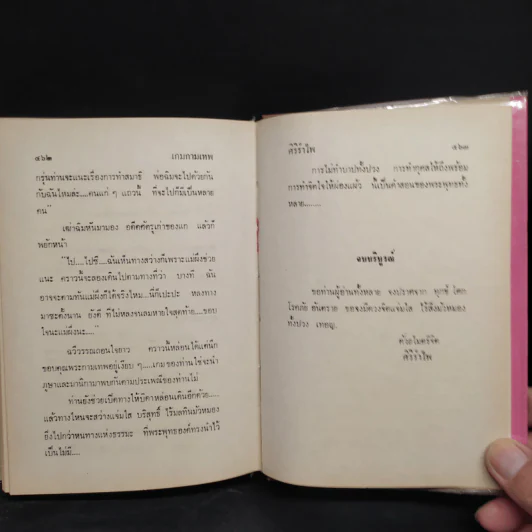 ๔๖๒ เกมกามเทพ
กรุ่นท่านจะแนะเรื่องการทำสมาธิ พ่อฉิมจะไปด้วยกัน
กับฉันไหมล่ะ....คนแก่ ๆ แถวนี้ ที่จะไปก็มีเป็นหลาย
คน"
เฒ่าฉิมหันมามอง อดีตศัตรูเก่าของแก แล้วก็
พยักหน้า
"ไป....ไปซี....ฉันเห็นทางสว่างก็เพราะแม่ผึ้งช่วย
แนะ คราวนี้จะลองเดินไปตามทางที่ว่า บางที ฉัน
อาจจะตามทันแม่ผึ้งก็ได้จริงไหม....นี่ก็ปะปะ หลงทาง
มาซะตั้งนาน ยังดี ที่ไม่หลงจนลมหายใจสุดท้าย....ขอบ
ใจนะแม่ผึ้งนะ...."
ฉวีวรรณถอนใจยาว คราวนี้หล่อนได้แต่นึก
ขอบคุณพระกามเทพอยู่เงียบ ๆ.....เกมของท่านใช่จะนำ
ภูษาและมานิกามาพบกันตามประเพณีของท่านไม่
ท่านยังช่วยเปิดทางให้บิดาหล่อนเดินอีกด้วย....
แล้วทางไหนจะสว่างแจ่มใส บริสุทธิ์ ไร้มลทินมัวหมอง
ยิ่งไปกว่าหนทางแห่งธรรมะ ที่พระพุทธองค์ทรงนำไว้
เป็นไม่มี....
ศิริรำไพ ๔๖๓
การไม่ทำบาปทั้งปวง การทำกุศลให้ถึงพร้อม
การทำจิตใจให้ผ่องแผ้ว นี้เป็นคำสอนของพระพุทธทั้ง
หลาย........
จบบริบูรณ์
ขอท่านผู้อ่านทั้งหลาย จงปราศจาก ทุกข์ โศก
โรคภัย อันตราย ขอจงมีดวงจิตแจ่มใส ไร้สิ่งมัวหมอง
ทั้งปวง เทอญ.
ด้วยไมตรีจิต
ศิริรำไพ